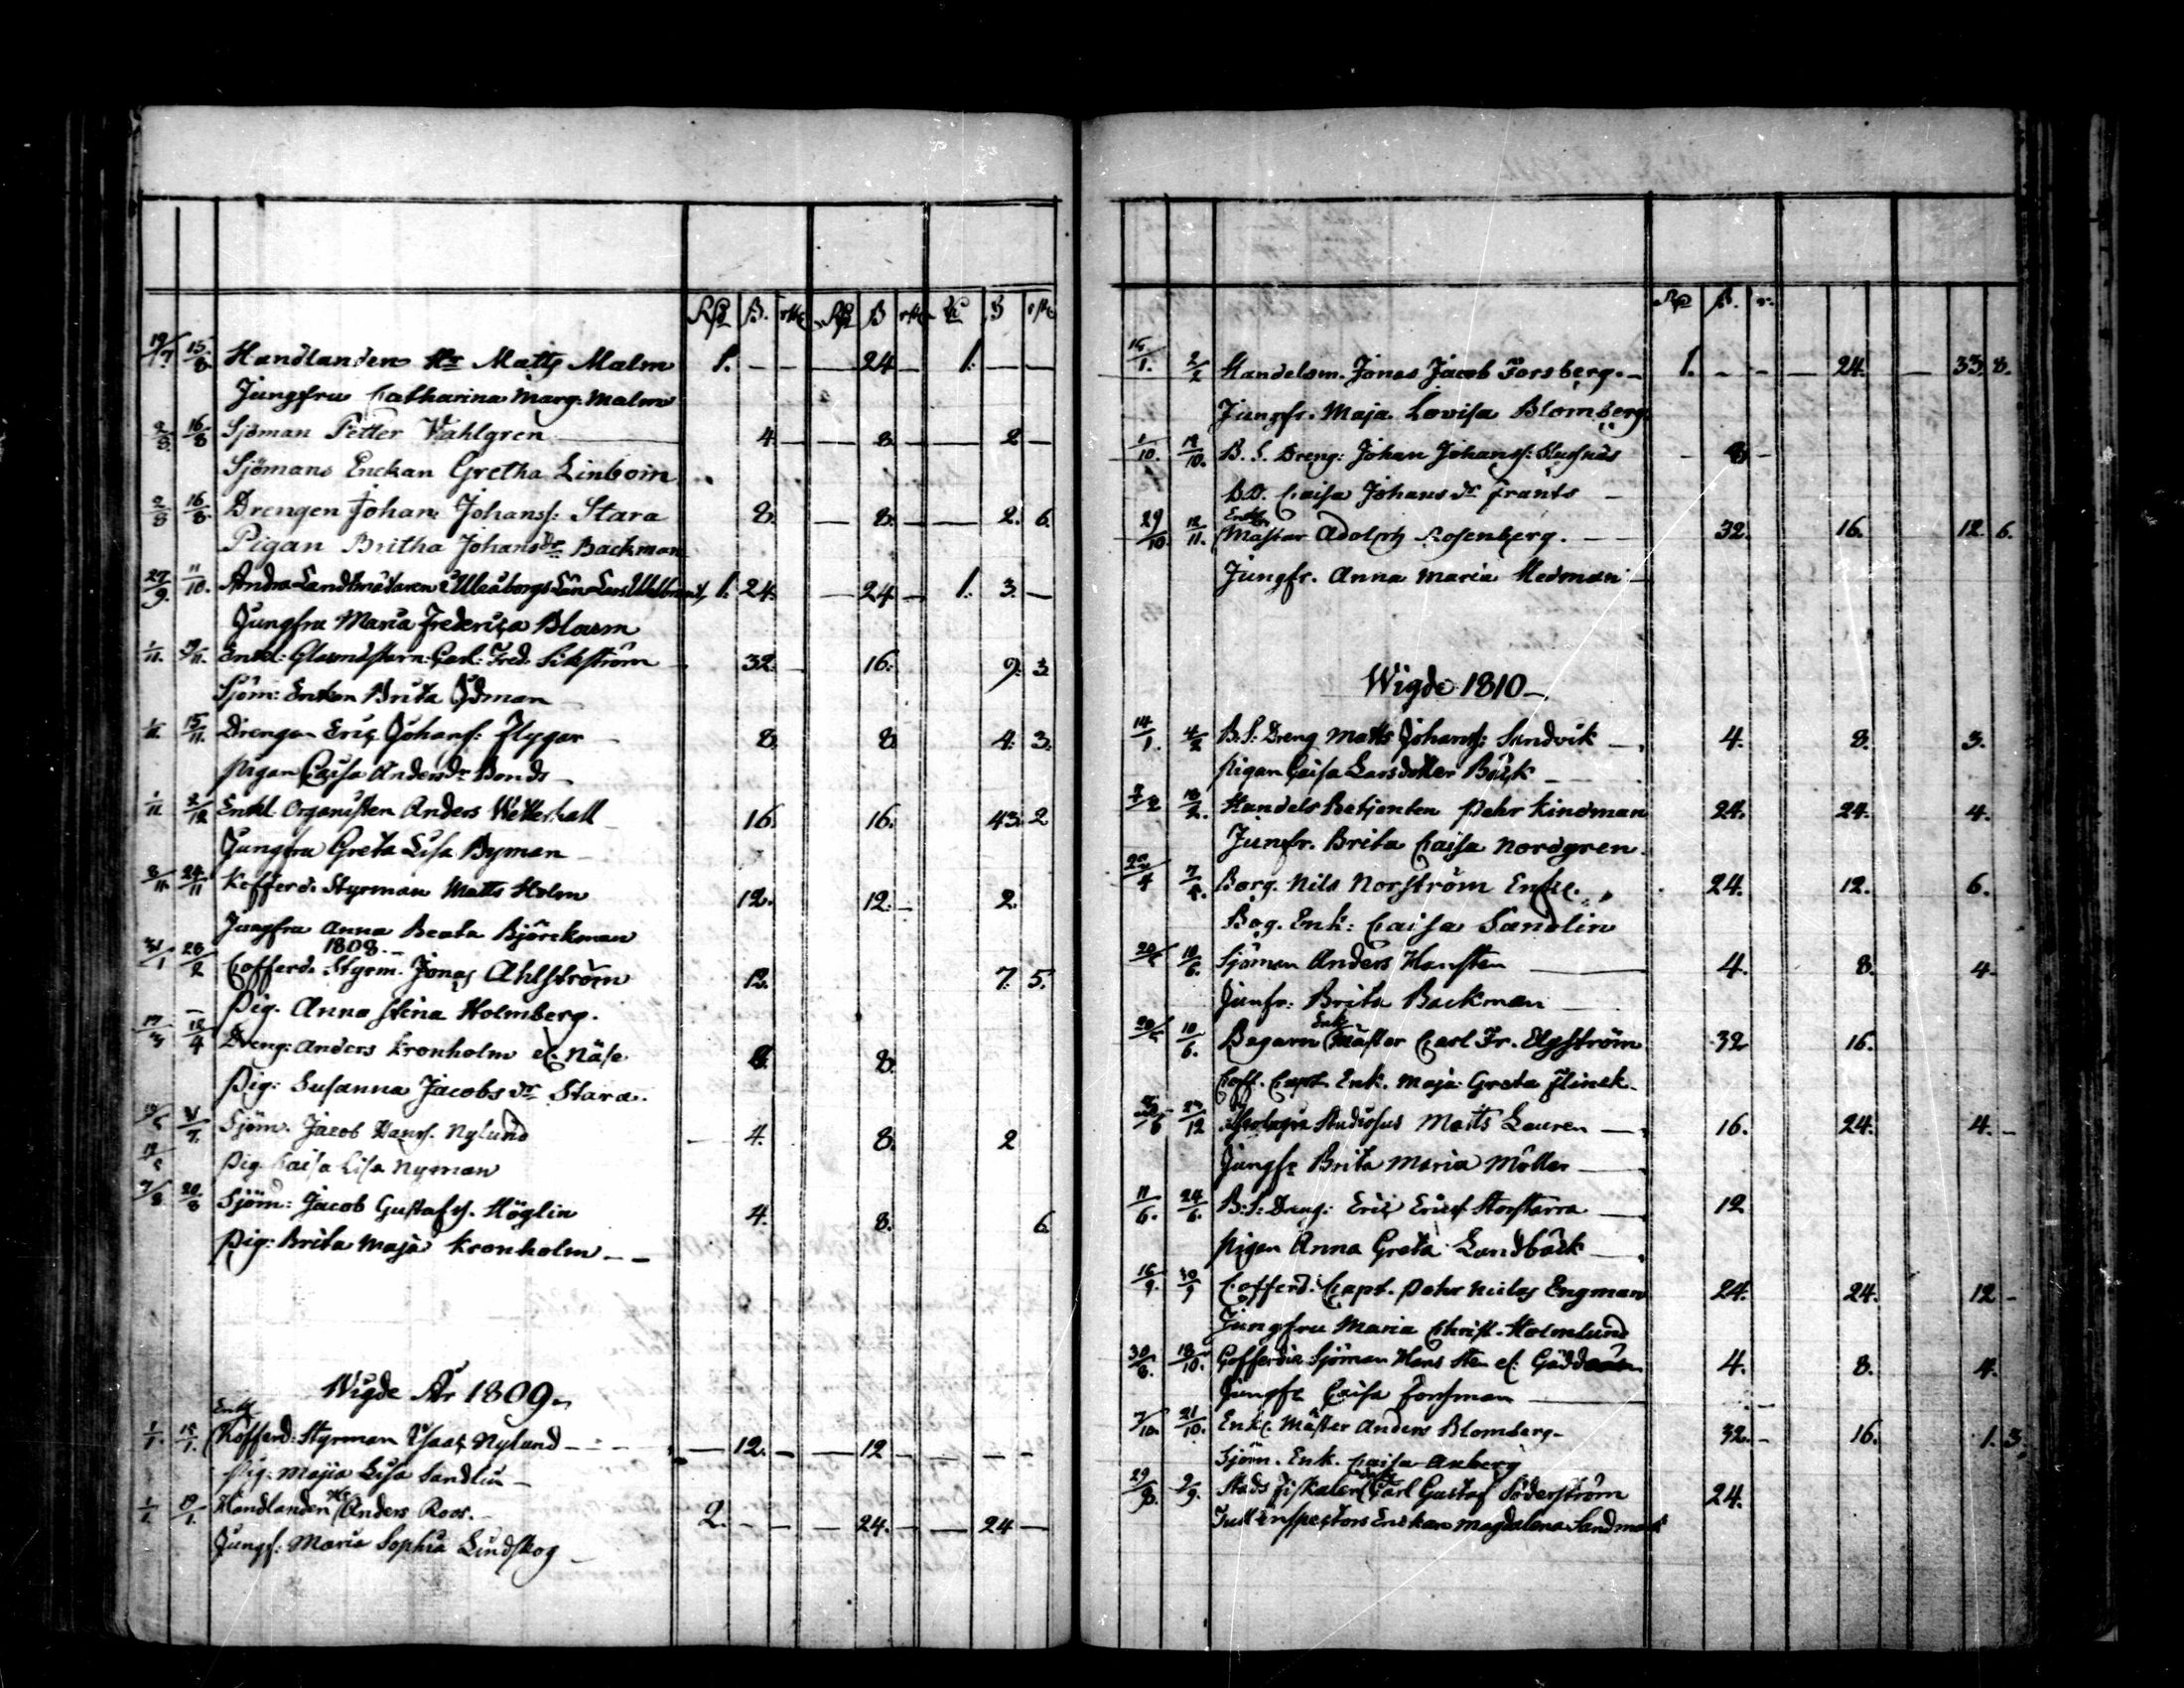 Rß B. rst Rß B rst R B rst
19/7. 15/8. Handlanden Hr Matts Malm 1. — — — 24 — 1. — —
Jungfru Catharina Marg. Malm
2/8. 16/8 Sjöman Petter Wahlgren 4. — — 8. — 2 —
Sjömans Enckan Gretha Linbom
2/8 16/8. Drengen Johan Johanss: Stara 8. — 8. — — 2. 6.
Pigan Britha Johansdr Backman
27/9. 11/10. Andra Landtmätaren i Uleåborgs Län Lars 1. 24. — 24 — 1. 3. —
Jungfru Maria Frederica Blom
1/11. 19/11. Enkl: Carl: Fred. Sikström 32. 16. 9. 3.
Sjöm: Enkan Brita Ödman
1/11. 15/11. Drengen Eric Johans: Flygar 8. 8. 4. 3.
Pigan Caisa Andersdr Bonds
1/11 2/12 Enkl. Organisten Anders Wetterhall 16. 16. 43. 2
Jungfru Greta Lisa Byman
8/11. 24/11 Kofferd. Styrman Matts Holm 12. 12. — 2.
Jungfru Anna Beata Björckman
1808.
31/1 28/2 Cofferd. Styrm. Jonas Ahlström 12. 7. 5.
Pig. Anna Stina Holmberg.
17/3 18/4 Dreng: Anders Kronholm el. Näse 8. 8.
Pig: Susanna Jacobsdr Stara.
Sjöm. Jacob Hans. Nylund 4. 8. 2
Pig. Caisa Lisa Nyman
7/8 20/8 Sjöm: Jacob Gustafs. Höglin 4. 8. 6.
Pig: Brita Maja Kronholm
Wigde År 1809.
Enkl
1/1. 15/1. Kofferd: Styrman Isaac Nylund — 12. — — 12 — — —
Pig: Majia Lisa Sandlin
1/1. 19/1. Handlanden Hr Anders Roos. 2. — — — 24. — — 24 —
Jungf: Maria Sophia Lindskog
Rß B. r.
15/1. 2/2 Handelsm. Jonas Jacob Forsberg. 1. — — — 24. — 33. 8.
Jungfr. Maja Lovisa Blomberg
1/10. 12/10. B. S. Dreng: Johan Johanss: — 8 —
B.D. Caisa Johansdr Frants
29/10. 12/11. Enkl. Mästar Adolph Rosenberg. 32. 16. 12. 6.
Jungfr. Anna Maria Hedman
Wigde 1810
14/1. 4/2 B. S: Dreng Matts Johans: Sandvik 4. 8. 3.
Pigan Caisa Larsdotter Bäck
2/2 18/2. Handels Betjenten Pehr Kindman 24. 24. 4.
Junfr. Brita Caisa Nordgren.
Borg. Nils Norström Enkl. 24. 12. 6.
Bog. Enk: Caisa Sandlin
20/5 10/6. Sjöman Anders Hansten 4. 8. 4.
Junfr: Brita Backman
20/5 10/6. Bagarn Enkl Mäster Carl Fr. Elgström 32 16.
Coff. Capt. Enk. Maja Greta Flinck.
Studiosus Matts Lauren 16. 24. 4. —
Jungfr Brita Maria Möller
11/6. 24/6. B: S: Dreng: Eric Erics Storstarra 12
Pigan Anna Greta Landbäck
16/9. 30/9 Cofferd: Capt. Pehr Niclas Engman 24. 24. 12 —
Jungfru Maria Christ. Holmlund
30/8. 18/10. Cofferdie Sjöman Hans Sten el: 4. 8. 4.
Jungfr Caisa Forsman
7/10. 21/10. Enkl. Mäster Anders Blomberg 32. — 16. 1. 3.
Sjöm. Enk. Caisa Anberg
29/8. 9/9. Stads Fiskalen Carl Gustaf Söderström 24.
Tull Inspectors Enckan Magdalena Sandmark